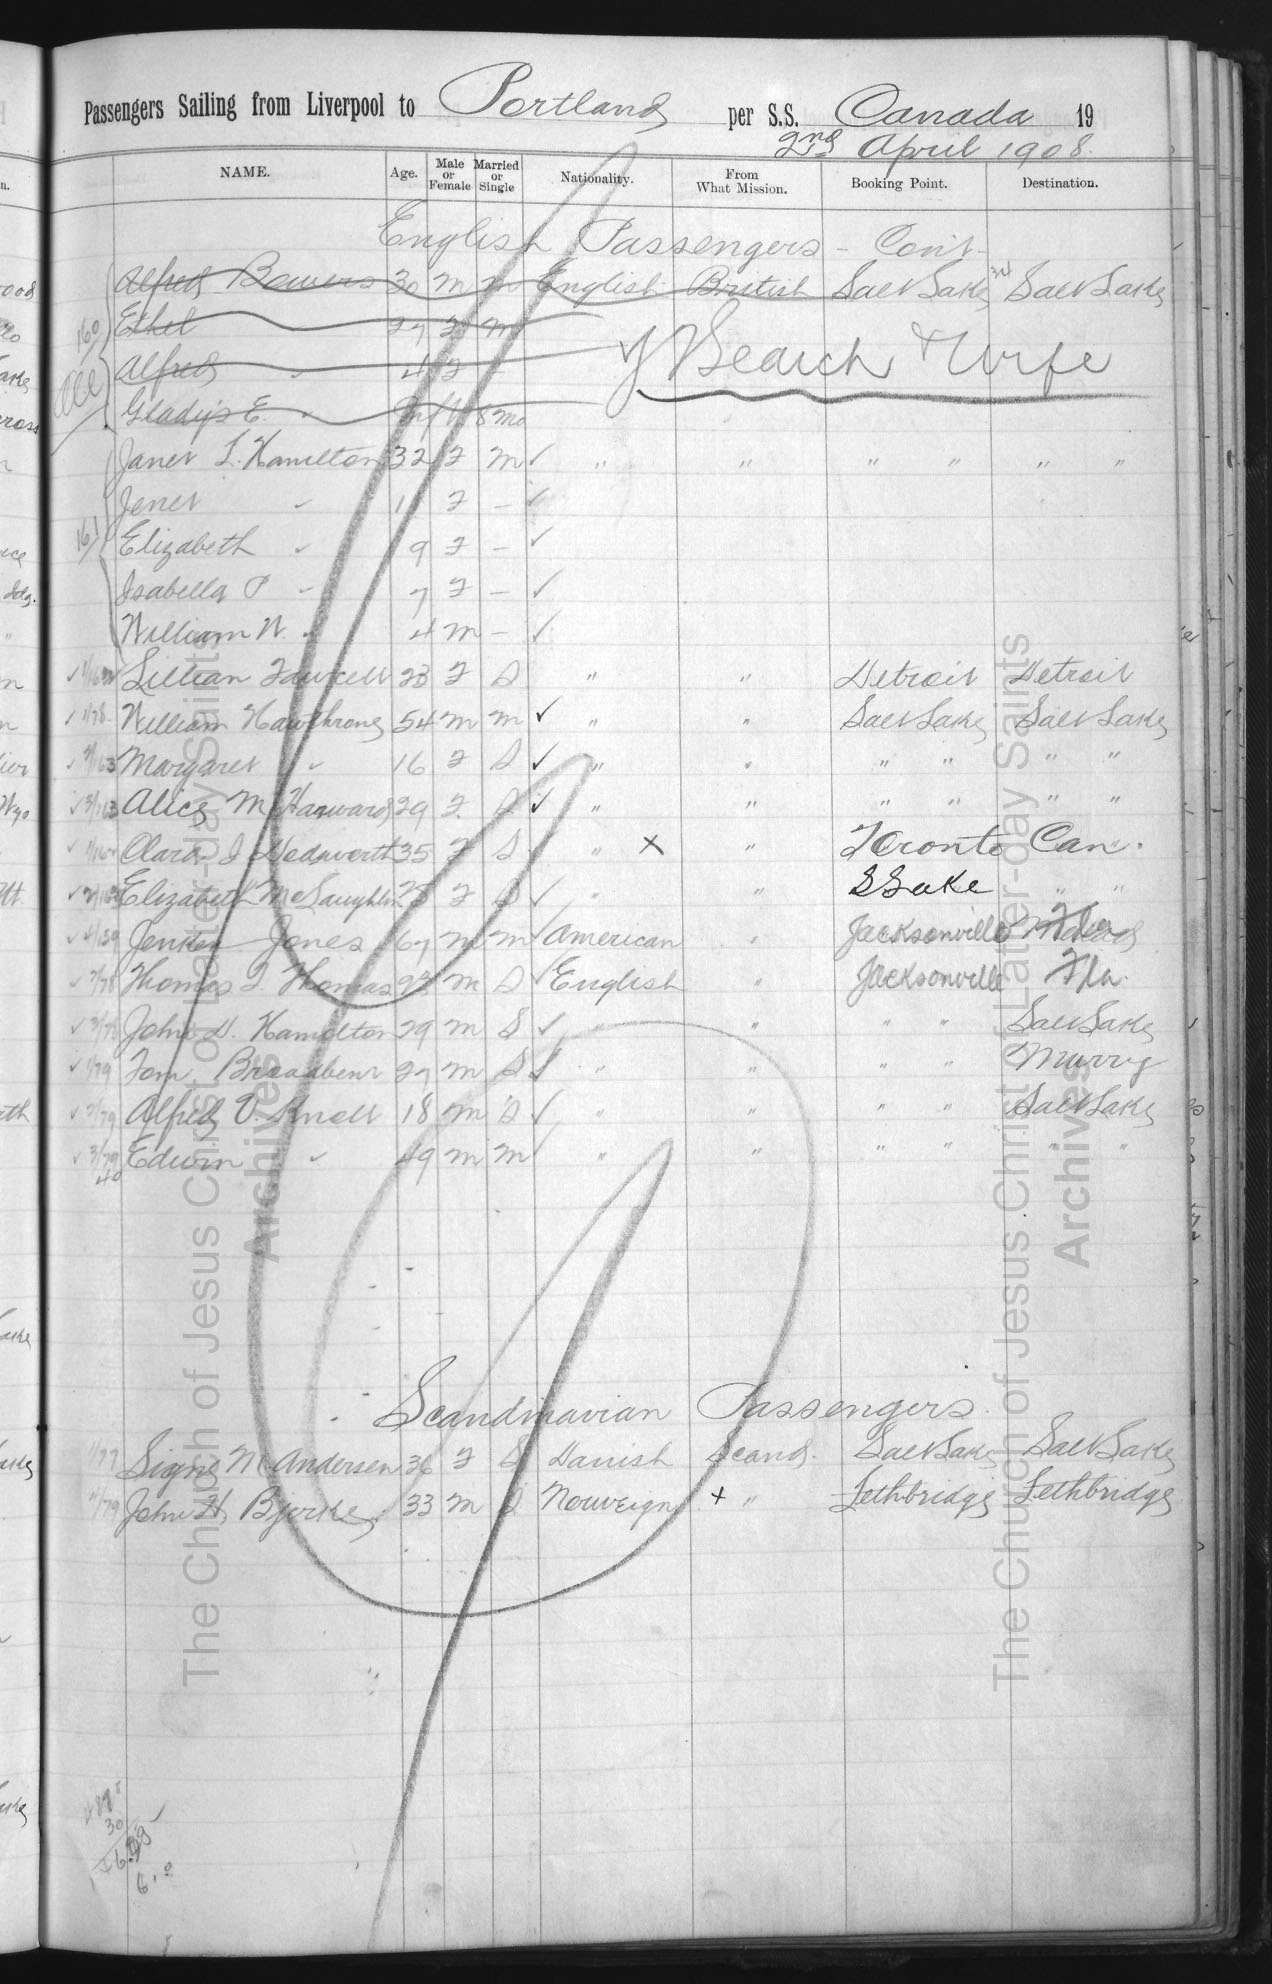 Passengers Sailing from Liverpool to Portland per S.S. Canada 19
2nd April 1908.
NAME. Age. Male or Female Married or Single Nationality. From What Mission. Booking Point. Destination.
English Passengers - Con't -
Alfred Bowers 30 m m English British Salt Lake Salt Lake
160 Ethel 27 F m
Alfred " 4
J Beach & Wife
Gladys E. "
Janet L. Hamilton 32 F m ✓ " " " " " "
Jenet " 11 F - ✓
161 Elizabeth " 9 F - ✓
Isabella P " 7 F - ✓
William W. " 4 m - ✓
✓ Lillian Fawcett 23 F S " " Detroit Detroit
✓ 1/78 William Hawthrone 54 m m ✓ " " Salt Lake Salt Lake
✓ 2/163 Margaret " 16 F S ✓ " " " " " "
✓ 3/163 Alice M. Harward 29 F S ✓ " " " " " "
✓ Clara J Hedworth 35 F S " x " Toronto Can.
✓ Elizabeth McLaughlin 25 F S ✓ " " S Lake " "
✓ 4/139 Jenkin Jones 67 m m ✓ American " Jacksonville
✓ 2/78 Thomas T. Thomas m S ✓ English " Jacksonville Fla.
✓ 3/78 John D. Hamilton 29 m S ✓ " " " Salt Lake
✓ 1/79 Tom Broadbent 27 m S ✓ " " " " Murry
✓ 2/79 Alfred V. Knell 18 m S ✓ " " " " Salt Lake
✓ 3/79 Edwin " 49 m m ✓ " " " " " "
40
Scandinavian Passengers.
1/77 Signe M. Andersen 36 F S Danish Scand. Salt Lake Salt Lake
4/79 John H. Bjerke 33 m S Norweign x " Lethbridge Lethbridge
30
The Church of Jesus Christ of Latter-day Saints
Archives
The Church of Jesus Christ of Latter-day Saints
Archives